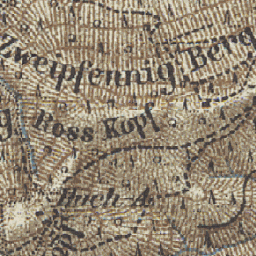 zweipfennig Berg
Ross Kopf
Buch A.